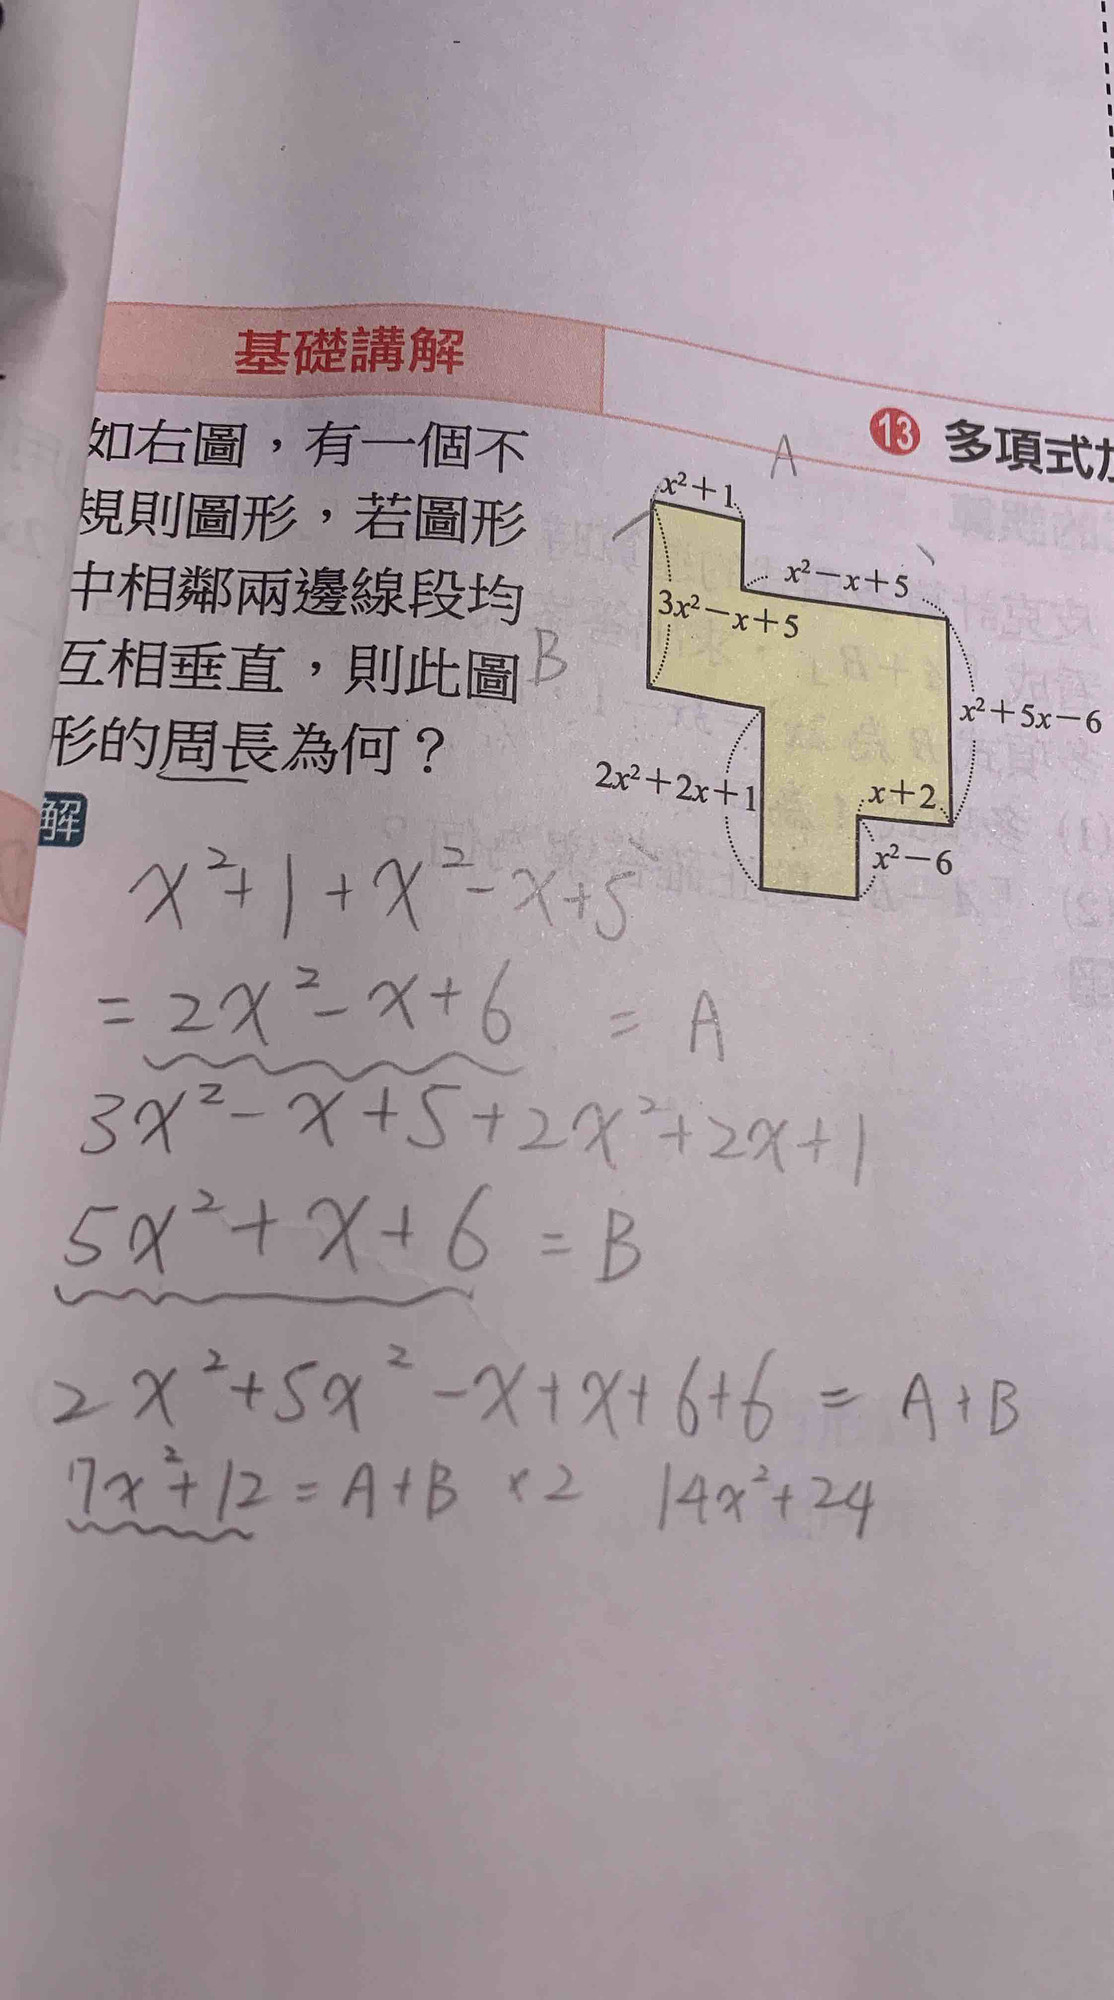 基礎講解
13 多項式
如右圖，有一個不
規則圖形，若圖形
中相鄰兩邊線段均
互相垂直，則此圖
形的周長為何？
A
x²+1
x²-x+5
3x²-x+5
B
x²+5x-6
2x²+2x+1
x+2
x²-6
解
x²+1+x²-x+5
=2x²-x+6 =A
3x²-x+5+2x²+2x+1
5x²+x+6=B
2x²+5x²-x+x+6+6=A+B
7x²+12=A+B ×2 14x²+24